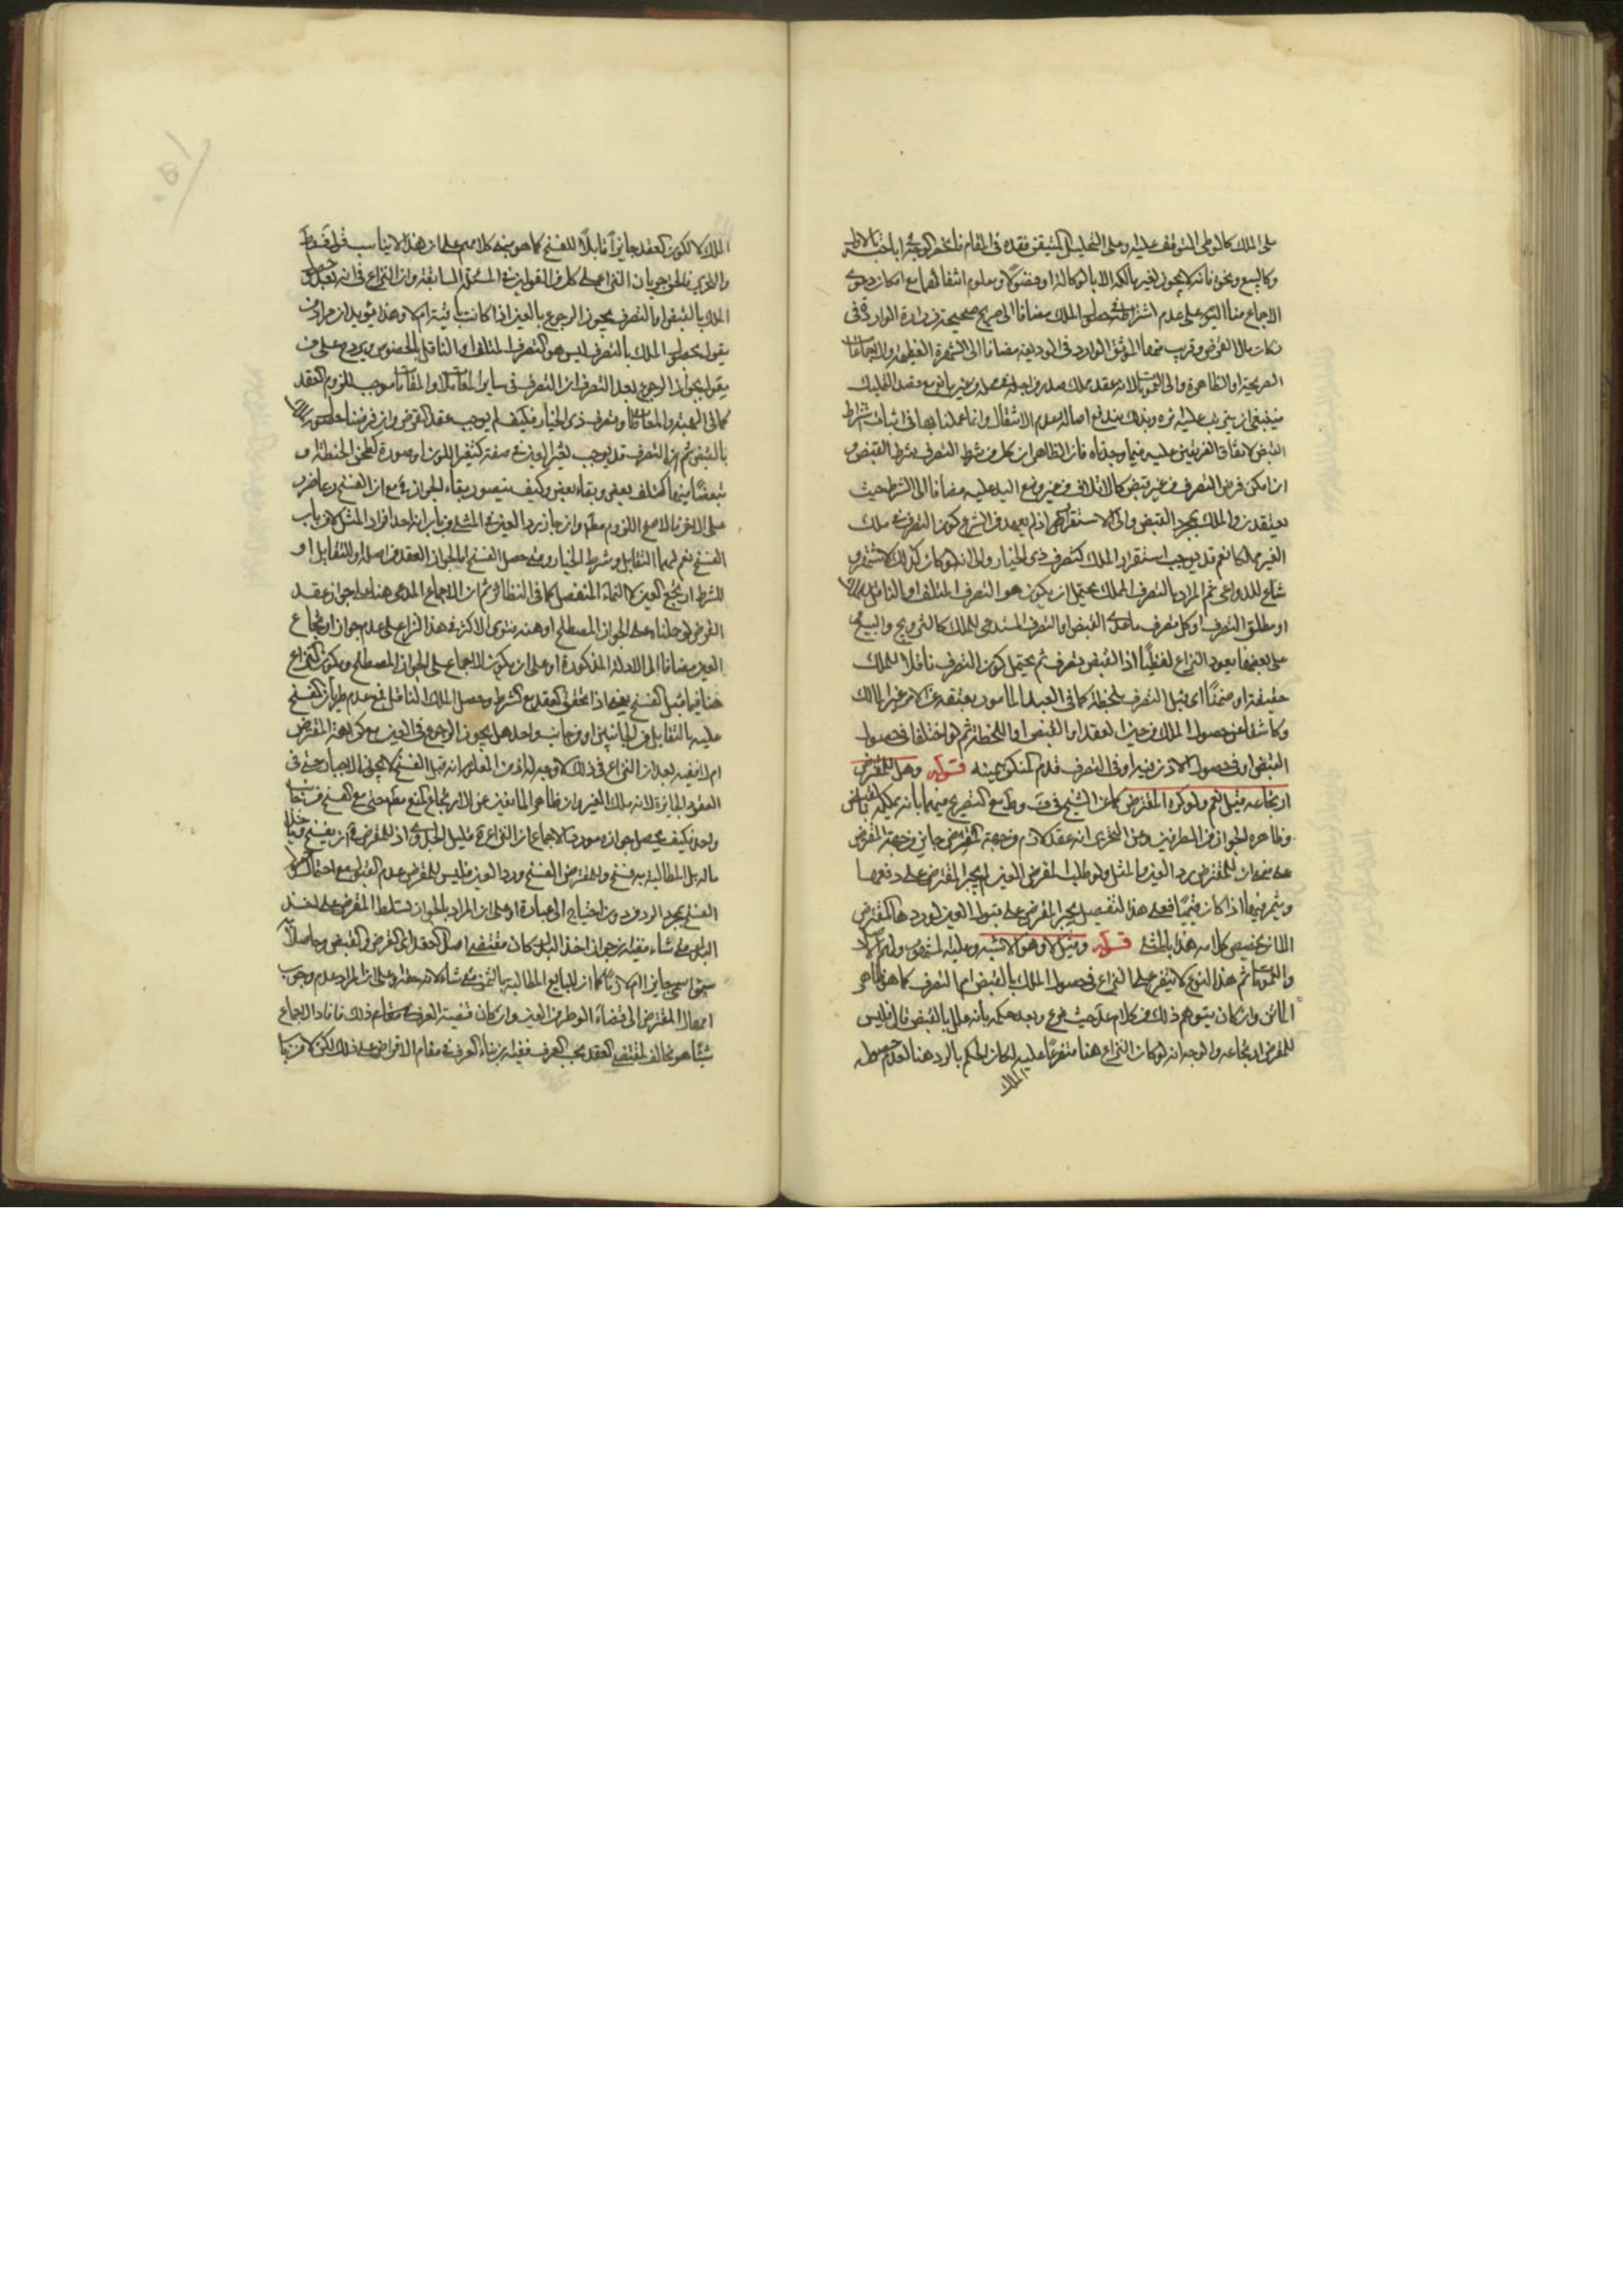 على الملك كالوطى المتوقف عليه وعلى التحليل المتيقن فقده فى المقام
وكالبيع ونحوه فانه لا يجوز لغير مالكه الا بالوكالة او فضولا ومعلوم انتفائهما مع امكان دعوى
الاجماع منا اليوم على عدم اشتراط حصول الملك مضافا الى صريح صحيحة زرارة الواردة فى
زكات مال القرض وقريب منها الموثق الوارد فى الوديعة مضافا الى الشهرة العظيمة والاجماعات
الصريحة او الظاهرة والى القرب بالانه عقد ملك صدر من اهله فى محله من غير مانع مع قصد التمليك
فينبغى ان يترتب عليه اثره وبذلك يندفع اصالة عدم الانتقال وانما عملنا بها فى اثبات اشتراط
القبض لاتفاق الفريقين عليه فيما وجدناه فان الظاهر ان كل من شرط التصرف شرط القبض و
ان امكن فرض التصرف من غير قبض كالاتلاف من غير وضع اليد عليه مضافا الى الشرط حيث
يعتقدون الملك بمجرد القبض والى الاستقراء اذ لم يعهد فى الشرع كون التصرف فى ملك
الغير مملكا نعم قد يوجب استقرار الملك كتصرف ذى الخيار والى انه لو كان كذلك لاشتهر و
شاع للدواعى ثم المراد بالتصرف المملك يحتمل ان يكون هو التصرف المتلف او الناقل
او مطلق التصرف او كل تصرف ما عدى القبض او التصرف المستدعى للملك كالتزويج والبيع
على بعضها يعود النزاع لفظيا اذ القبض تصرف ثم يحتمل كون التصرف ناقلا للملك
حقيقة او ضمنا اى قبل التصرف بلحظة كما فى العبد المامور بعتقه عن الامر غير المالك
وكاشفا عن حصول الملك من حين العقد او القبض او اللحظة ثم لو اختلفا فى حصول
القبض او فى حصول الاذن فيه او فى التصرف قدم المنكر بيمينه قوله وهل للمقرض
ارتجاعه قيل نعم ولو كره المقترض كما عن الشيخ فى ف وط مع التصريح فيهما بانه يملكه بالقبض
وظاهره الجواز من الطرفين وعن التحرير انه عقد لازم من جهة المقرض جايز من جهة المقترض
على معنى ان للمقترض رد العين والمثل ولو طلب المقرض العين لم يجبر المقترض على دفعها
المقرض على قبول العين لو رد ها المقترض
كلامه هذا بالمثلى قوله وقيل لا وهو الاشبه وعليه
والمتون ثم هذا النوع لا يتفرع على النزاع فى حصول الملك بالقبض ام التصرف كما هو ظاهر
الماتن وان كان يتوهم ذلك من كلام عد حيث فرع وبعد حكمه بانه يملك بالقبض قال فليس
للمقرض ارتجاعه والوجه انه لو كان النزاع هنا متفرعا عليه لكان الحكم بالرد هنا لعدم حصول
الملك
الملك لا لكون العقد جايزا قابلا للفسخ كما هو صريح كلامهم على ان هذا لا يناسب
والتحرير فالحق جريان النزاع على كل من القولين فى المسئلة السابقة وان النزاع فى انه بعد حصول
الملك بالقبض او بالتصرف يجوز الرجوع بالعين اذا كانت باقية ام لا وهذا مؤيد لان مراد من
يقول بحصول الملك بالتصرف ليس هو التصرف المتلف او الناقل بالخصوص ويرد على من
يقول بجواز الرجوع بعد التصرف ان التصرف فى ساير المعاملات والمعاوضات موجب للزوم العقد
كما فى الهبة والمعاطاة وتصرف ذى الخيار فكيف لم يوجب عقد القرض وان فرضنا حصول
بالقبض ثم ان التصرف قد يوجب تغير العين فى صفة كتغير اللون او صورة كطحن الحنطة و
على الاخر فالاصح اللزوم مطلقا وان جاز رد العين فى المثلى من باب انه احد افراد المثل لا من باب
الفسخ نعم لهما التقايل وشرط الخيار ومتى حصل الفسخ بالجواز العقد من اصله او للتقايل او
للشرط ارتجع العين لا النماء المنفصل كما فى النظائر ثم ان الاجماع المدعى هنا على جواز عقد
القرض لو حملناه على الجواز المصطلح او هذه فتوى الاكثر فى هذا النزاع على عدم جواز ارتجاع
العين مضافا الى الادلة المذكورة او على ان يكون الاجماع على الجواز المصطلح ويكون النزاع
هنا فيما قبل الفسخ
عليه بالتقايل من الجانبين او من جانب واحد هل يجوز الرجوع فى العين مع كراهة المقترض
ام لا ففيه بعد ان النزاع فى ذلك لا وجه له اذ من المعلوم انه قبل الفسخ لا يجوز الاجبار حتى فى
العقود الجايزة لانه ملك الغير وان ظاهر المانعين عن الارتجاع المنع مطلقا حتى مع الفسخ من جانب
واحد فكيف يحصل
ماله بل المطالبة به فسخ وللمقترض الفسخ ورد العين فليس للمقرض عدم القبول مع احتمال
الفسخ بمجرد الرد من دون احتياج الى عبارة او على ان المراد بالجواز تسلط المقرض على اخذ
البدل متى شاء ففيه ان جواز اخذ البدل كان مقتضى اصل العقد اى القرض والقبض وحاصلا
سمى جايزا ام لازما كما ان للبايع المطالبة بالثمن متى شاء لانه حقه وعلى ان المراد عدم وجوب
امهال المقترض الى قضاء الوطر من العين وان كان قضية العرف فى مقام ذلك فافاد الاجماع
شيئا هو مخالف لمقتضى العقد بحسب العرف ففيه ان بناء العرف فى مقام الاقراض على ذلك لكن لا من باب